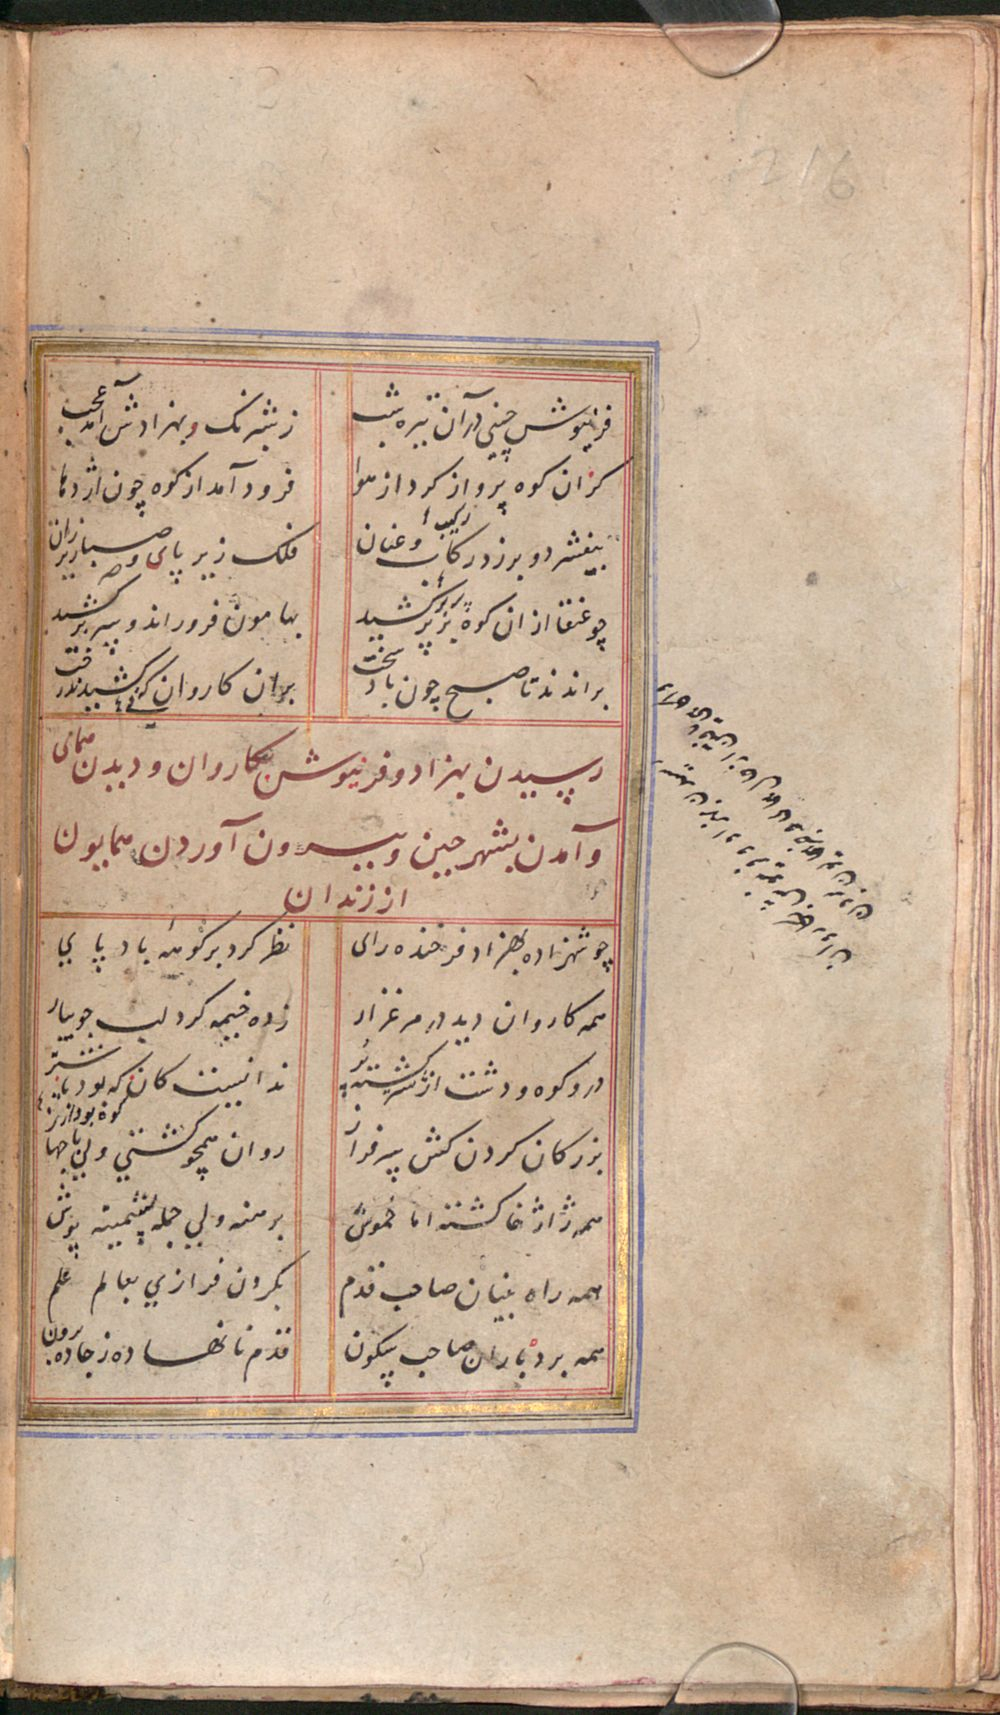 216
فرینوش چینی در آن تیره شب
ز شبرنگ و بهزادش آمد عجب
کزان کوه پرواز کرد از هوا
فرود آمد از کوه چون اژدها
بیفشرد و برزد رکاب و عنان
رکیب
فلک زیر پای و صبا زیر ران
چو عنقا از ان کوه بر پر کشید
بهامون فرو راند و سر بر کشید
براندند تا صبح چون باد سخت
بران کاروان که کشیدند رخت
رسیدن بهزاد و فرینوش بکاروان و دیدن همای
و آمدن بشهر چین و بیرون آوردن همایون
از زندان
چو شهزاده بهزاد فرخنده رای
نظر کرد بر کوههٔ باد پای
همه کاروان دید در مرغزار
زده خیمه گرد لب جویبار
در و کوه و دشت از شتر گشته پر
ندانست کان که بود یا شتر
بزرکان کردن کش سرفراز
روان همچو کشتی ولی با جهاز
همه ژاژخا گشته اما خموش
برهنه ولی جمله پشمینه پوش
همه راه بینان صاحب قدم
بکردن فرازی بعالم علم
همه بردباران صاحب سکون
قدم نانهاده ز جاده برون